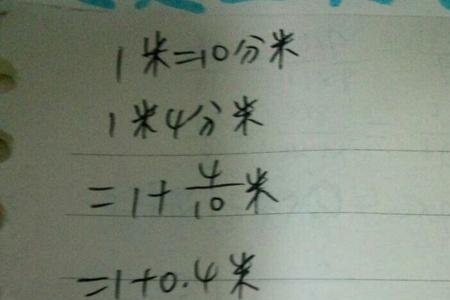 1米=10分米
1米4分米
=1+4/10米
=1+0.4米